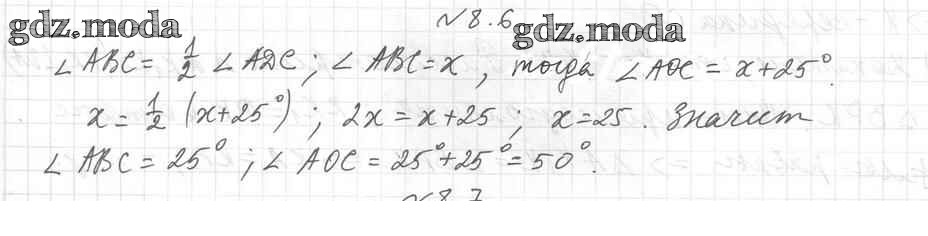 № 8.6
gdz.moda gdz.moda
∠ABC = 1/2 ∠ADC; ∠ABC = x, тогда ∠AOC = x+25°.
x = 1/2 (x+25°); 2x = x+25; x=25. Значит
∠ABC = 25°; ∠AOC = 25°+25°=50°.
№ 8.7